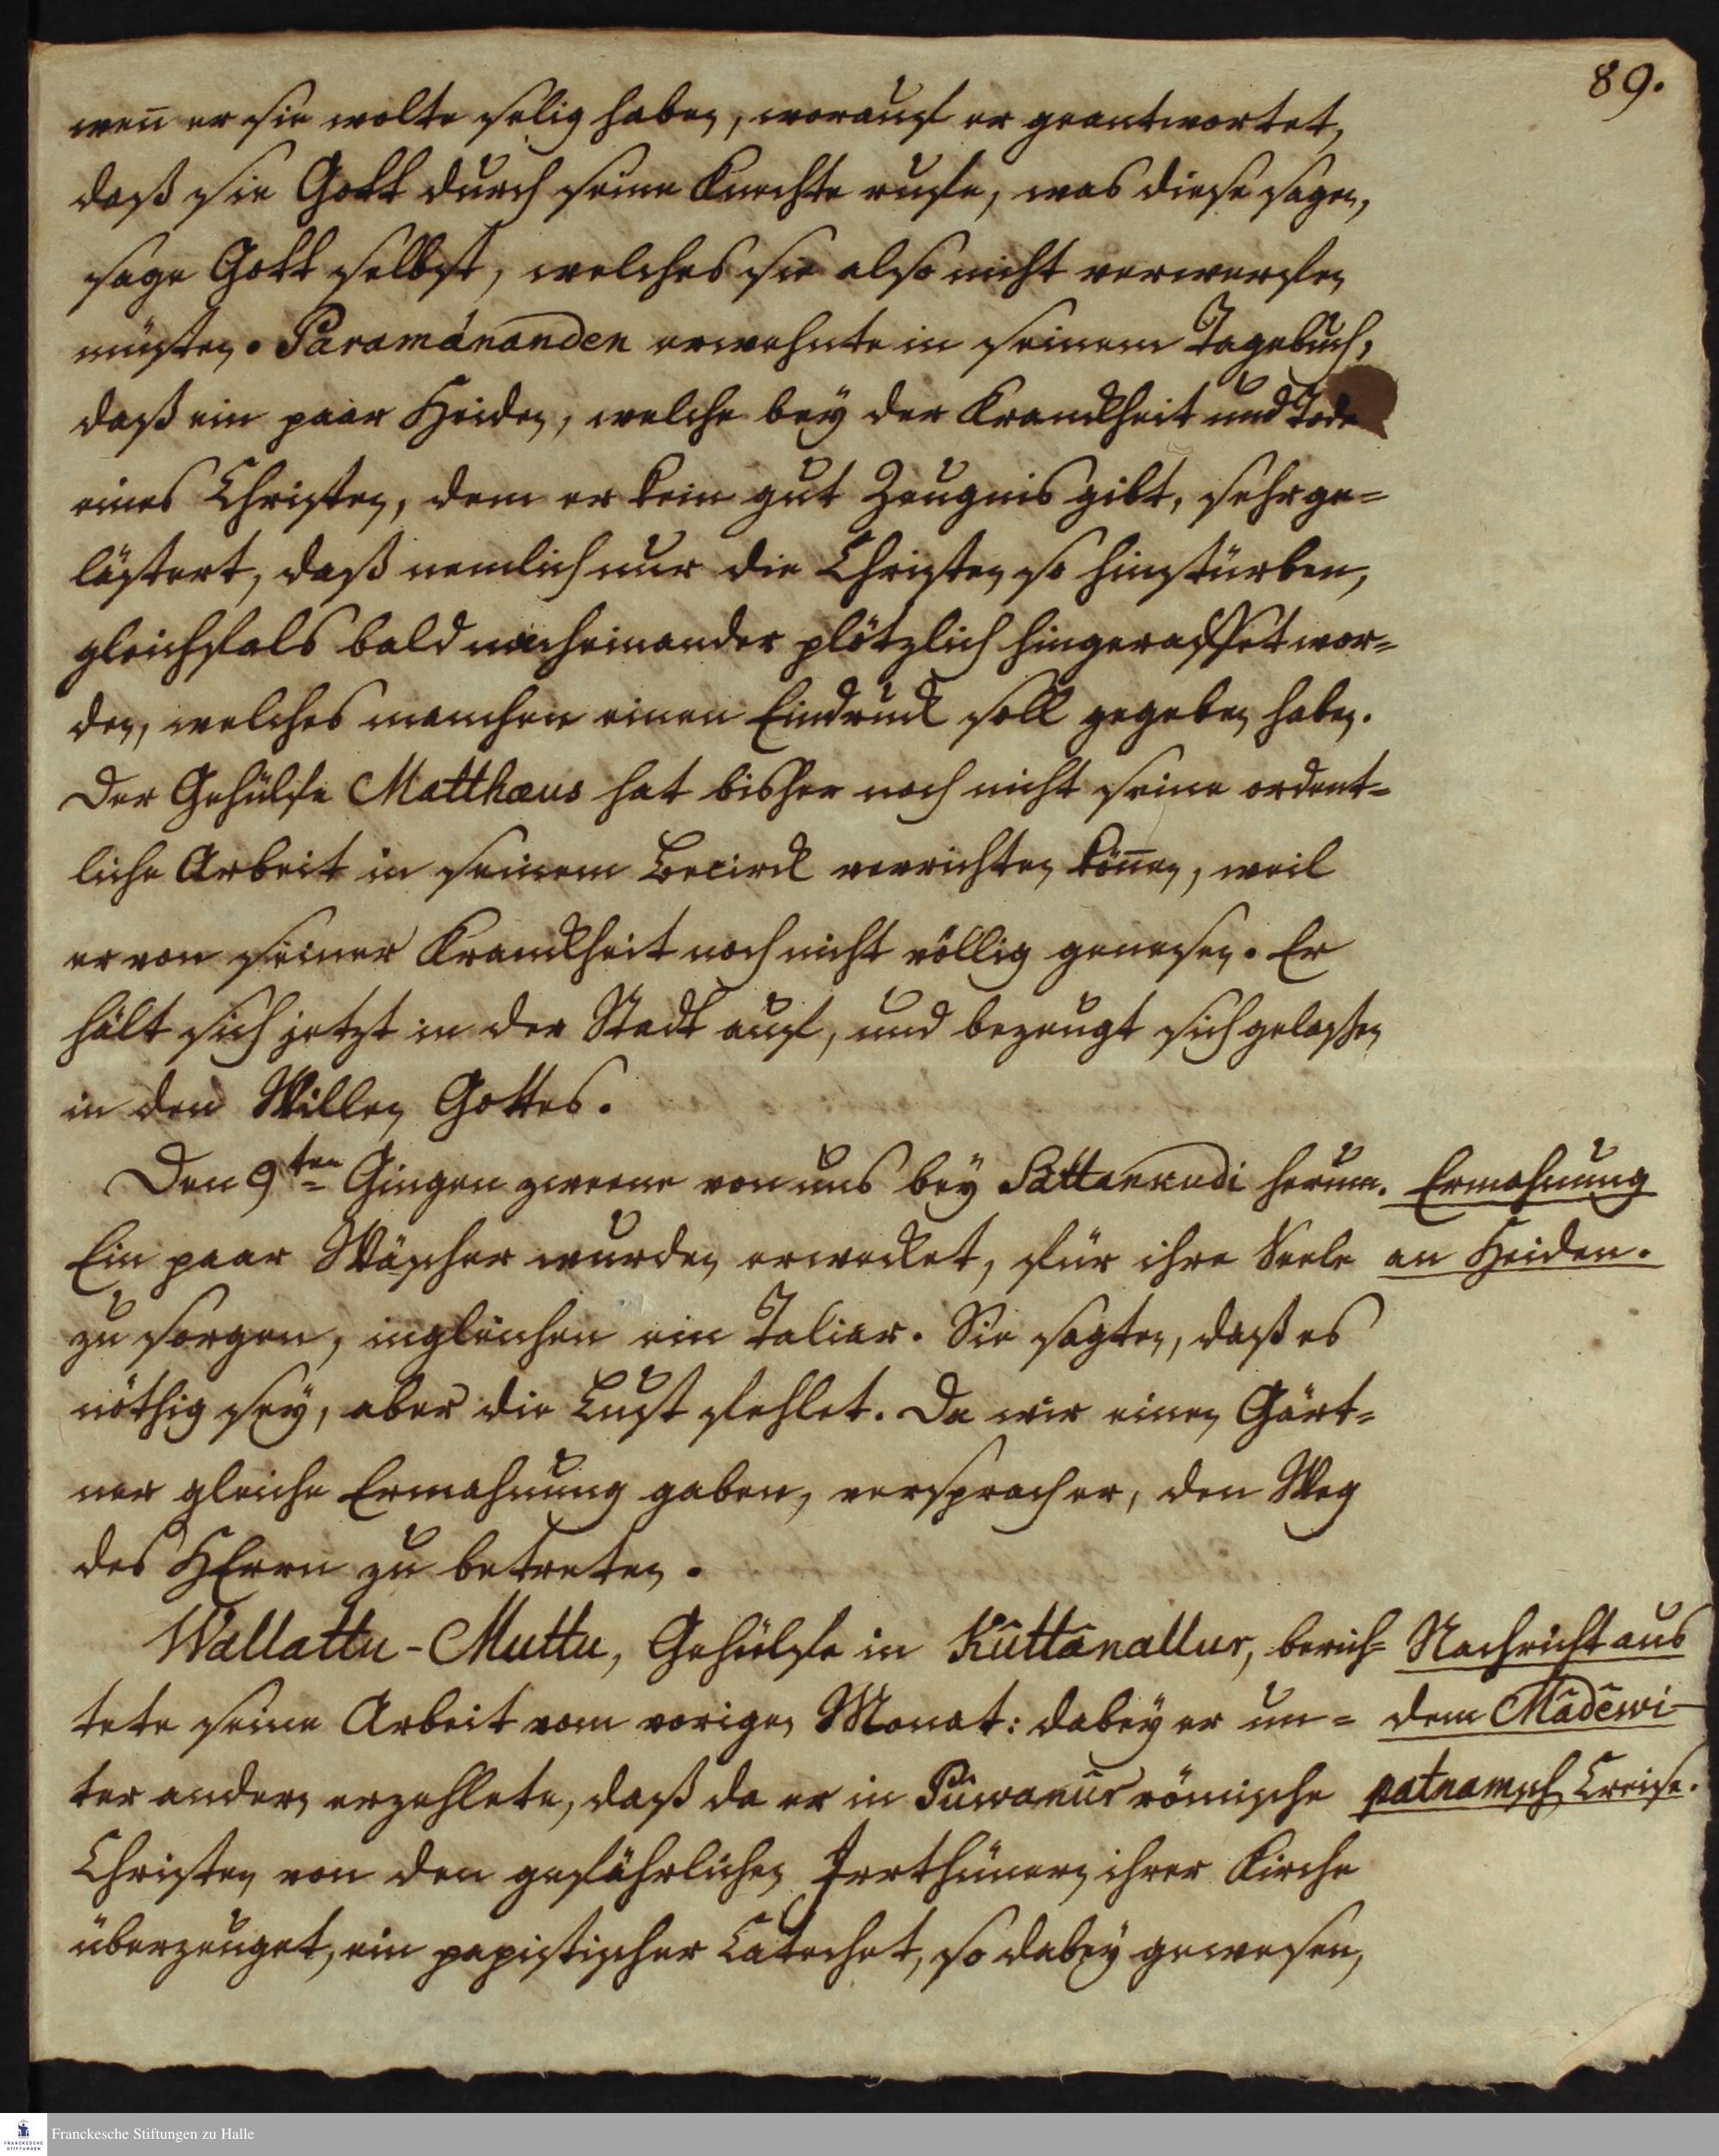 89.
wen̄ er sie wolte selig haben, worauf er geantwortet,
daß sie Gott durch seine Knechte rufe, was diese sagen,
sage Gott selbst, welches sie also nicht verwerfen
müsten. Paramánanden erwehnte in seinem Tagebuch,
daß ein paar Heiden, welche bey der Kranckheit und Tode
eines Christen, dem er kein gut Zeugnis gibt, sehr ge=
lästert, daß nemlich nur die Christen so hinstürben,
gleichfals bald nacheinander plötzlich hingeraffet wor=
den, welches manchen einen Eindruck soll gegeben haben.
Der Gehülfe Matthæus hat bisher noch nicht seine ordent=
liche Arbeit in seinem Becirck verrichten kön̄en, weil
er von seiner Kranckheit noch nicht völlig genesen. Er
hält sich jetzt in der Stadt auf, und bezeugt sich gelaßen
in den Willen Gottes.
Den 9ten Gingen zweene von uns bey Sattankudi herum.
Ermahnung
Ein paar Wäscher wurden erwecket, für ihre Seele
an Heiden.
zu sorgen, ingleichen ein Taliar. Sie sagten, daß es
nöthig sey, aber die Lust fehlet. Da wir einen Gärt=
ner gleiche Ermahnung gaben, versprach er, den Weg
des HErrn zu betreten.
Wallattu-Muttu, Gehülfe in Kûttânallur, berich=
Nachricht aus
tete seine Arbeit vom vorigen Monat: dabey er un=
dem Mâdêwi-
ter andern erzehlete, daß da er in Pûwanûr römische
patnamsch Creise.
Christen von den gefährlichen Irrthümern ihrer Kirche
überzeuget, ein papistischer Catechet, so dabey gewesen,
Franckesche Stiftungen zu Halle